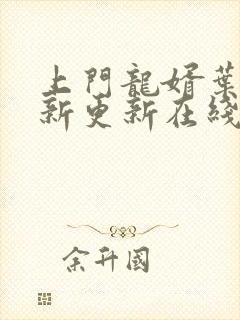 上門龍婿葉
新更新在綫
余升國